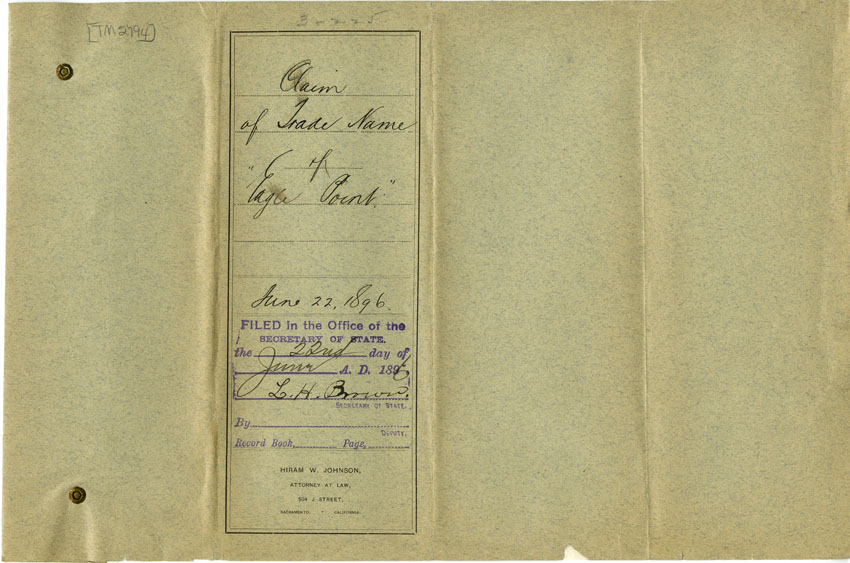 [TM2794]
3-225
Claim
of Trade Name
of
"Eagle Point."
June 22, 1896.
FILED in the Office of the
SECRETARY OF STATE,
the 22nd day of
June A. D. 1896
L. H. Brown.
SECRETARY OF STATE.
By
DEPUTY.
Record Book, Page,
HIRAM W. JOHNSON,
ATTORNEY AT LAW,
504 J STREET,
SACRAMENTO, CALIFORNIA.